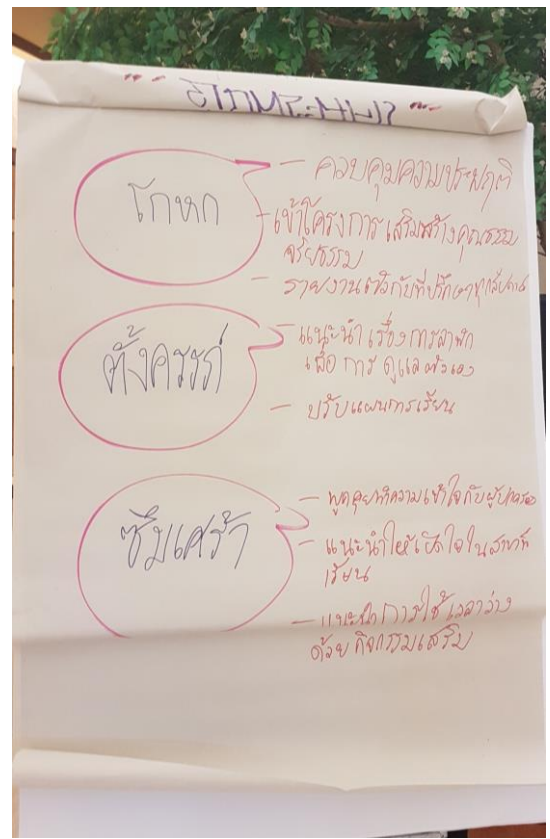 โกหก
- ควบคุมความประพฤติ
- เข้าโครงการเสริมสร้างคุณธรรม
จริยธรรม
- รายงานตัวกับที่ปรึกษาทุกสัปดาห์
ตั้งครรภ์
- แนะนำเรื่องการลาพัก
เพื่อการดูแลตัวเอง
- ปรับแผนการเรียน
ซึมเศร้า
- พูดคุยทำความเข้าใจกับผู้ปกครอง
- แนะนำให้เปิดใจในสาขาที่
เรียน
- แนะนำการใช้เวลาว่าง
ด้วยกิจกรรมเสริม